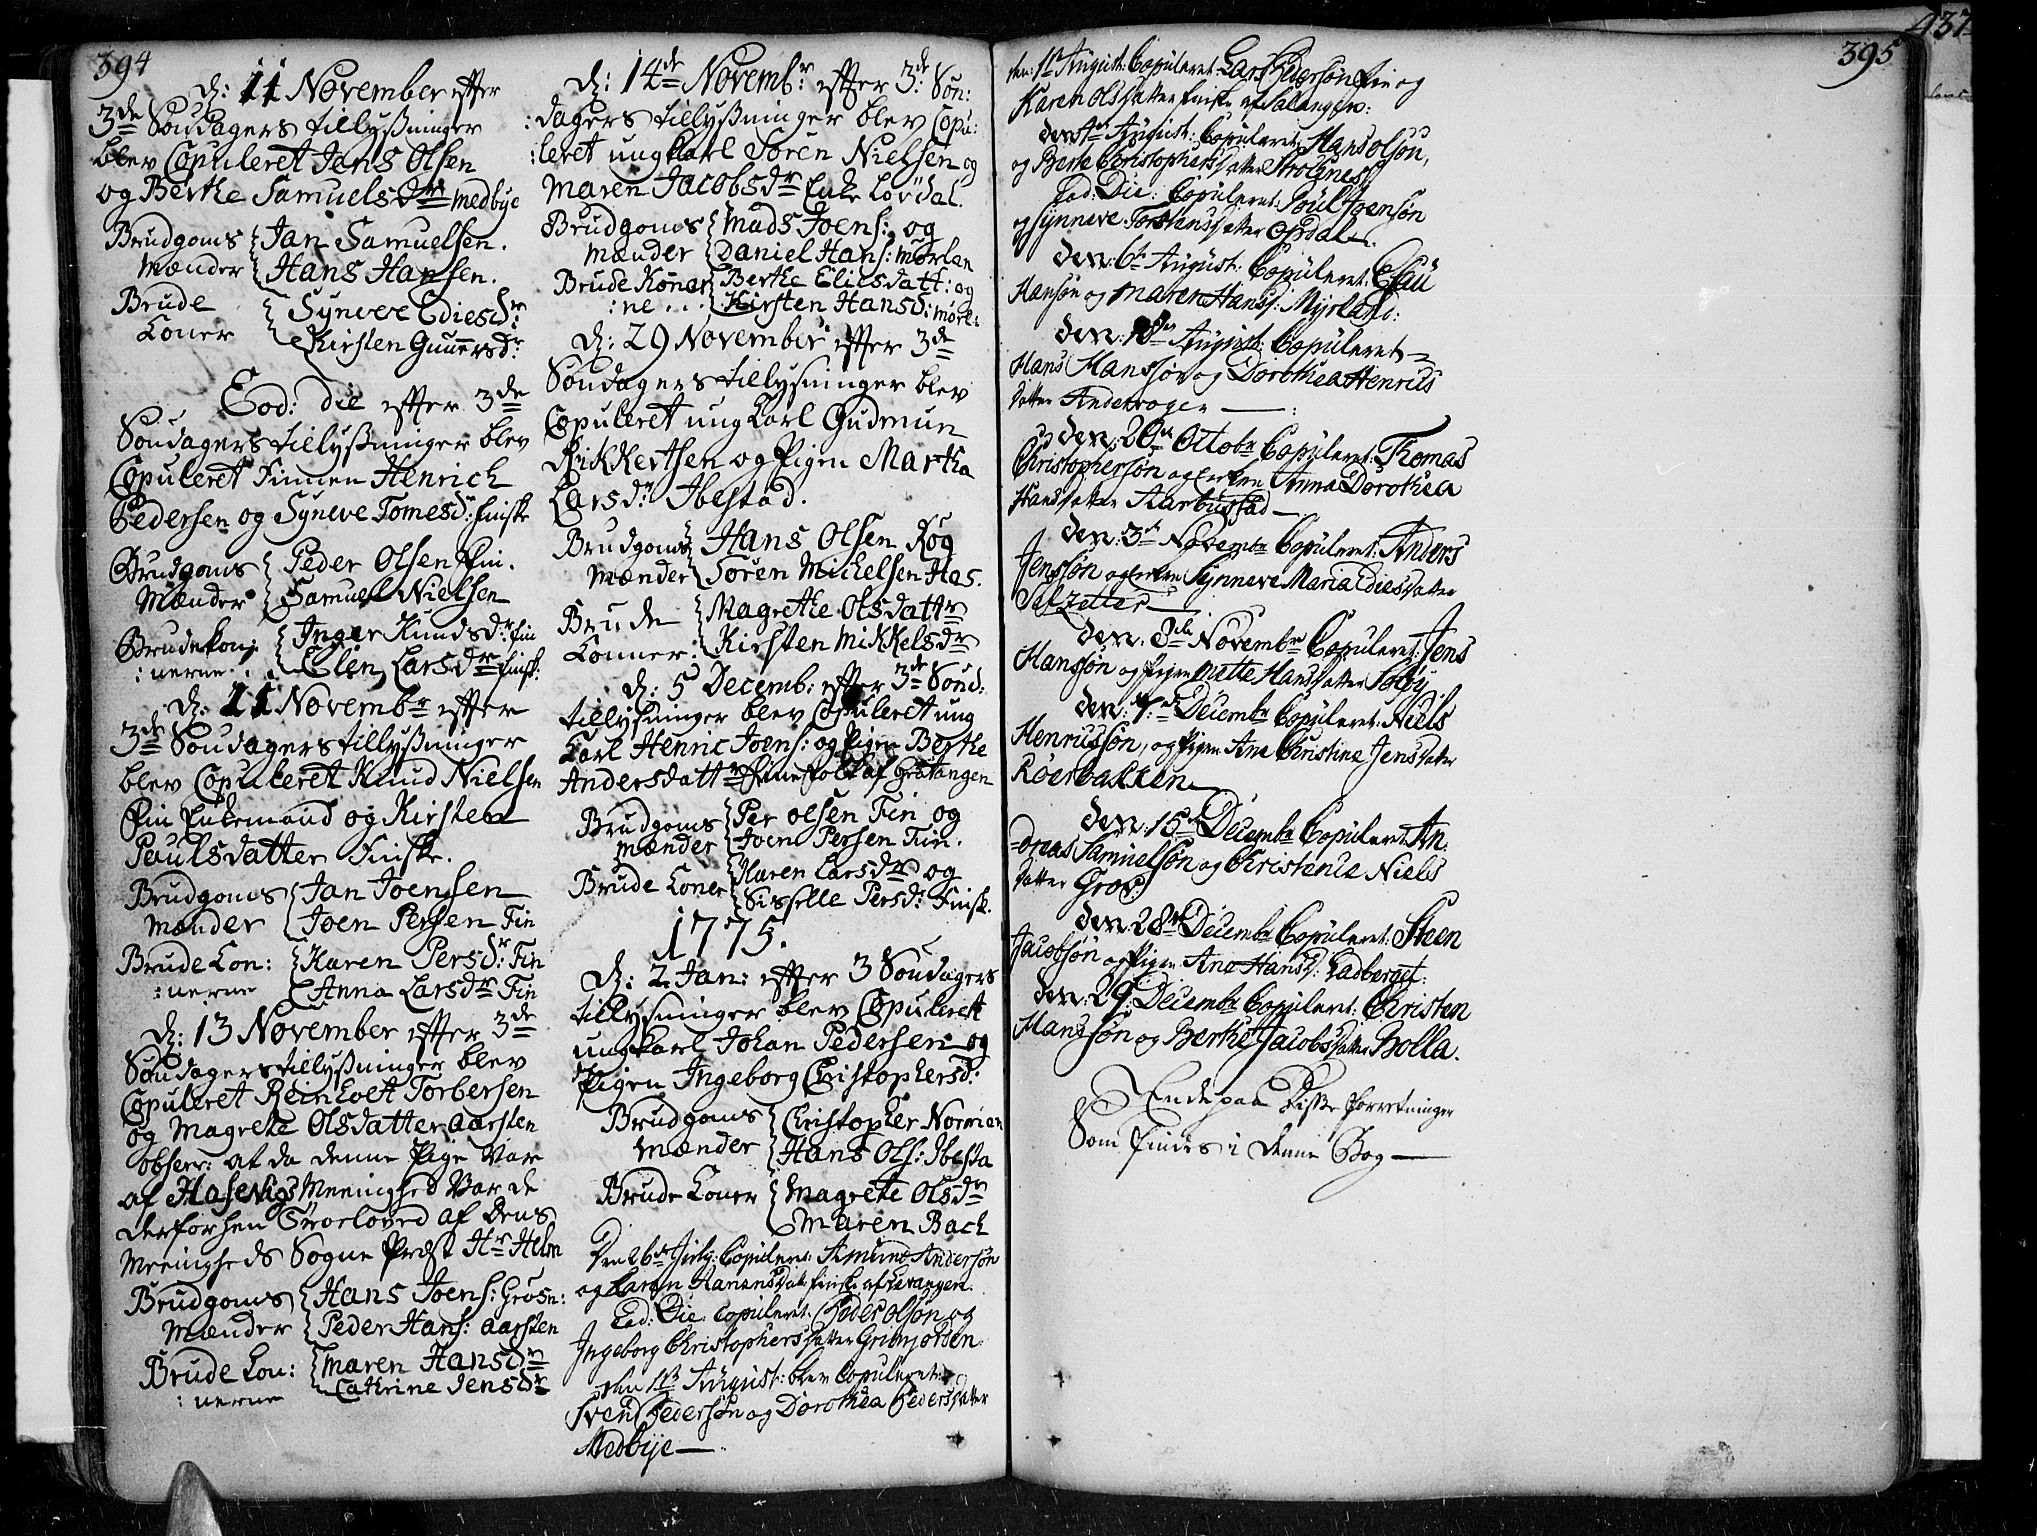 394
d: 11 November efter
3de Søndagers tillysninger
blev Copuleret Jens Olsen
og Berthe Samuelsdr Medbye
Brudgoms { Jan Samuelsen.
Mænder { Hans Hansen.
Brude { Syneve Ediesdr:
Koner { Kirsten Gunnersdr:
Eod: die efter 3de
Søndagers tillysninger blev
Copuleret Finnen Henrich
Pedersen og Syneve Tomesd: Finske
Brudgoms { Peder Olsen Fin.
Mænder { Samuel Nielsen
Brudekon: { Inger Knudsdr: Fin
:nerne . . { Elen Larsdr Finsk.
d: 11 Novembr efter
3de Søndagers tillysninger
blev Copuleret Knud Nielsen
Fin Enkemand og Kirsten
Paulsdatter Finske.
Brudgoms { Jan Joensen
Mænder { Joen Persen Fin
Brude Kon: { Karen Persdr: Fin
:nerne { Anna Larsdr Fin
d: 13 November efter 3de
Søndagers tillysninger blev
Copuleret Reinholt Torbersen
og Magrete Olsdatter Aarsten
obserr: at da denne Pige var
af Hasevigs Meenighed var de
derforhen troeloved af dens
Meenigheds Sogne Præst Hr Helm
Brudgoms { Hans Joens: Grosn:
Mænder { Peder Hans: Aarsten
Brude Kon: { Maren Hansdr
:nerne { Cathrine Jensdr
d: 14de Novembr: efter 3de Søn:
:dagers tillysninger blev Copu:
:leret ungkarl Søren Nielsen og
Maren Jacobsdr Enke Løvdal.
Brudgoms { Mads Joens: og
Mænder { Daniel Hans: Mørlan
Brude Koner { Berthe Eliesdatt: og
:ne . . { Kirsten Hansd: Mørl:
d: 29 November efter 3de
Søndagers tillysninger blev
Copuleret ung Karl Gudmun
Rikkertsen og Pigen Martha
Larsdr Ibestad.
Brudgoms { Hans Olsen Røg
Mænder { Søren Michelsen Has.
Brude { Magrethe Olsdattr
Konner: { Kirsten Mikkelsdr
d: 5 Decemb: efter 3de Sønd:
tillysninger blev Copuleret ung
Karl Henric Joens: og Pigen Berthe
Andersdattr Finnefolk af Gratangen
Brudgoms { Per Olsen Fin og
Mænder { Joen Persen Fin.
Brude Koner { Karen Larsdr og
Sisselle Persd: Finsk.
1775.
d: 2 Jan: efter 3 Søndagers
tillysninger blev Copuleret
ungkarl Johan Pedersen og
Pigen Ingeborg Christophersd:
Brudgoms { Christopher Normen
Mænder { Hans Ols: Ibesta
Brude Koner { Magrete Olsdr
Maren Bach
Den 26de July: Copuleret: Amund Andersøn
og Karen Hanensdatt: Finske af Lavangen.
Eod: Die: Copuleret: Peder Olsøn og
Ingeborg Christophersdatter Grimjorden.
den 1de August: blev Copuleret:
Svend Pedersøn og Dorothea Pedersdatter
Medbye —
437
395
den: 1de August: Copuleret: Lars Pedersøn Fin og
Karen Olsdatter Finske af Salangen:
den: 4de August: Copuleret Hans Olsøn,
og Berte Christophersdatter Strognes
Eod: Die: Copuleret: Poul Joensøn
og Synneve Torstensdatter Opdal.
den: 6te August: Copuleret: Esau
Hansøn og Maren Hansd: Myrland:
den: 18de August: Copuleret
Hans Hanssøn og Dorothea Henrics
datter Andervogen —
den: 20de Octobr Copuleret: Thomas
Christophersøn og Enken Anna Dorothea
Hansdatter Aarbustad —
den: 3de Novembr Copuleret: Anders
Jenssøn og Enken Synneve Maria Ediesdatter
Salzetter —
den: 8de Novembr Copuleret: Jens
Hanssøn og Pigen Mette Hansdatter Søløy
den: 7de Decembr Copuleret: Niels
Henricssøn, og Pigen Ane Christine Jensdatter
Røerbakken
den: 15de Decembr Copuleret An:
=dreas Samuelsøn og Christense Niels
datter Grov:
den: 28de Decembr Copuleret: Steen
Jacobsøn og Pigen Ane Hansd: Ladberget:
den: 29: Decembr Copuleret: Christen
Hanssøn og Berthe Jacobsdatter Bolla.
Ende paa Disse Forretninger
Som findes i denne Bog —